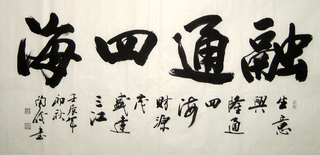 融通四海
生意
興
隆通
四
海
財源
茂
盛達
三江
壬辰年
初秋